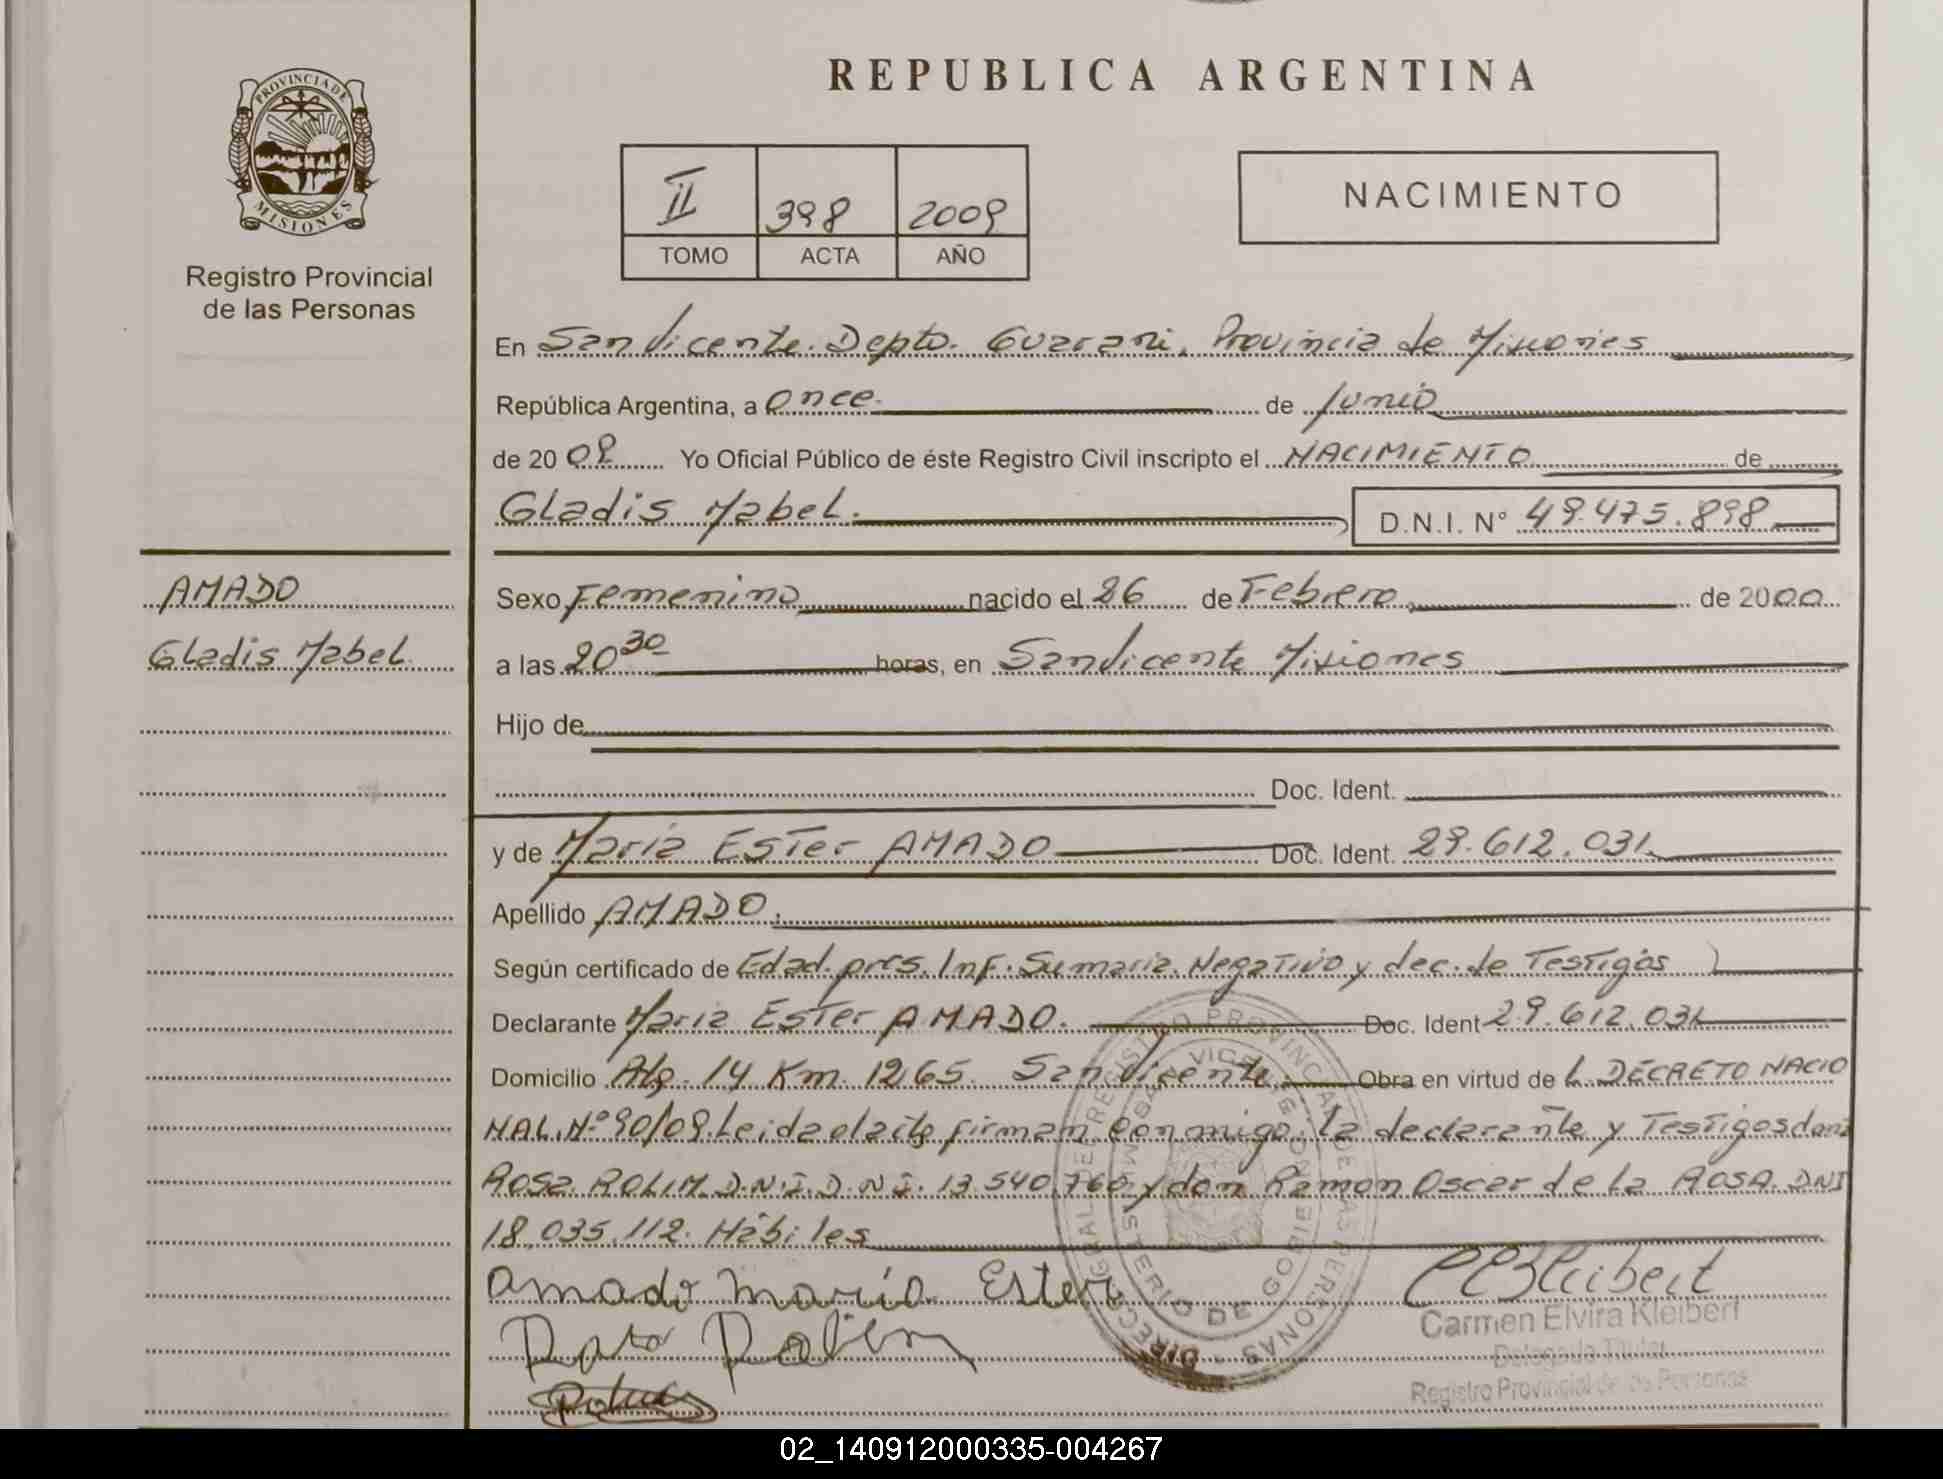 REPUBLICA ARGENTINA
PROVINCIA DE
MISIONES
Registro Provincial
de las Personas
II 398 2009
TOMO ACTA AÑO
NACIMIENTO
En San Vicente. Depto. Guarani, Provincia de Misiones
República Argentina, a Once de Junio
de 2009 Yo Oficial Público de éste Registro Civil inscripto el NACIMIENTO de
Gladis Mabel. D.N.I. N° 49.475.898
AMADO
Gladis Mabel
Sexo Femenino nacido el 26 de Febrero de 2000
a las 20 30 horas, en San Vicente Misiones
Hijo de
Doc. Ident.
y de Maria Ester AMADO Doc. Ident. 29.612.031
Apellido AMADO.
Según certificado de Edad. pres. Inf. Sumaria Negativo y dec. de Testigos
Declarante Maria Ester AMADO. Doc. Ident 29.612.031
Domicilio km. 1265. San Vicente. Obra en virtud de L DECRETO NACIO
NAL. N° 90/09. Leida el acta firman conmigo, la declarante y Testigos
Rosa ROLIM D.N.I. D.N.I. 13.540.760 y don Ramon Oscar de la ROSA. DNI
18.035.112. Hábiles
Amado María Ester
Carmen Elvira Kleibert
Delegado Titular
Registro Provincial de las Personas
02_140912000335-004267